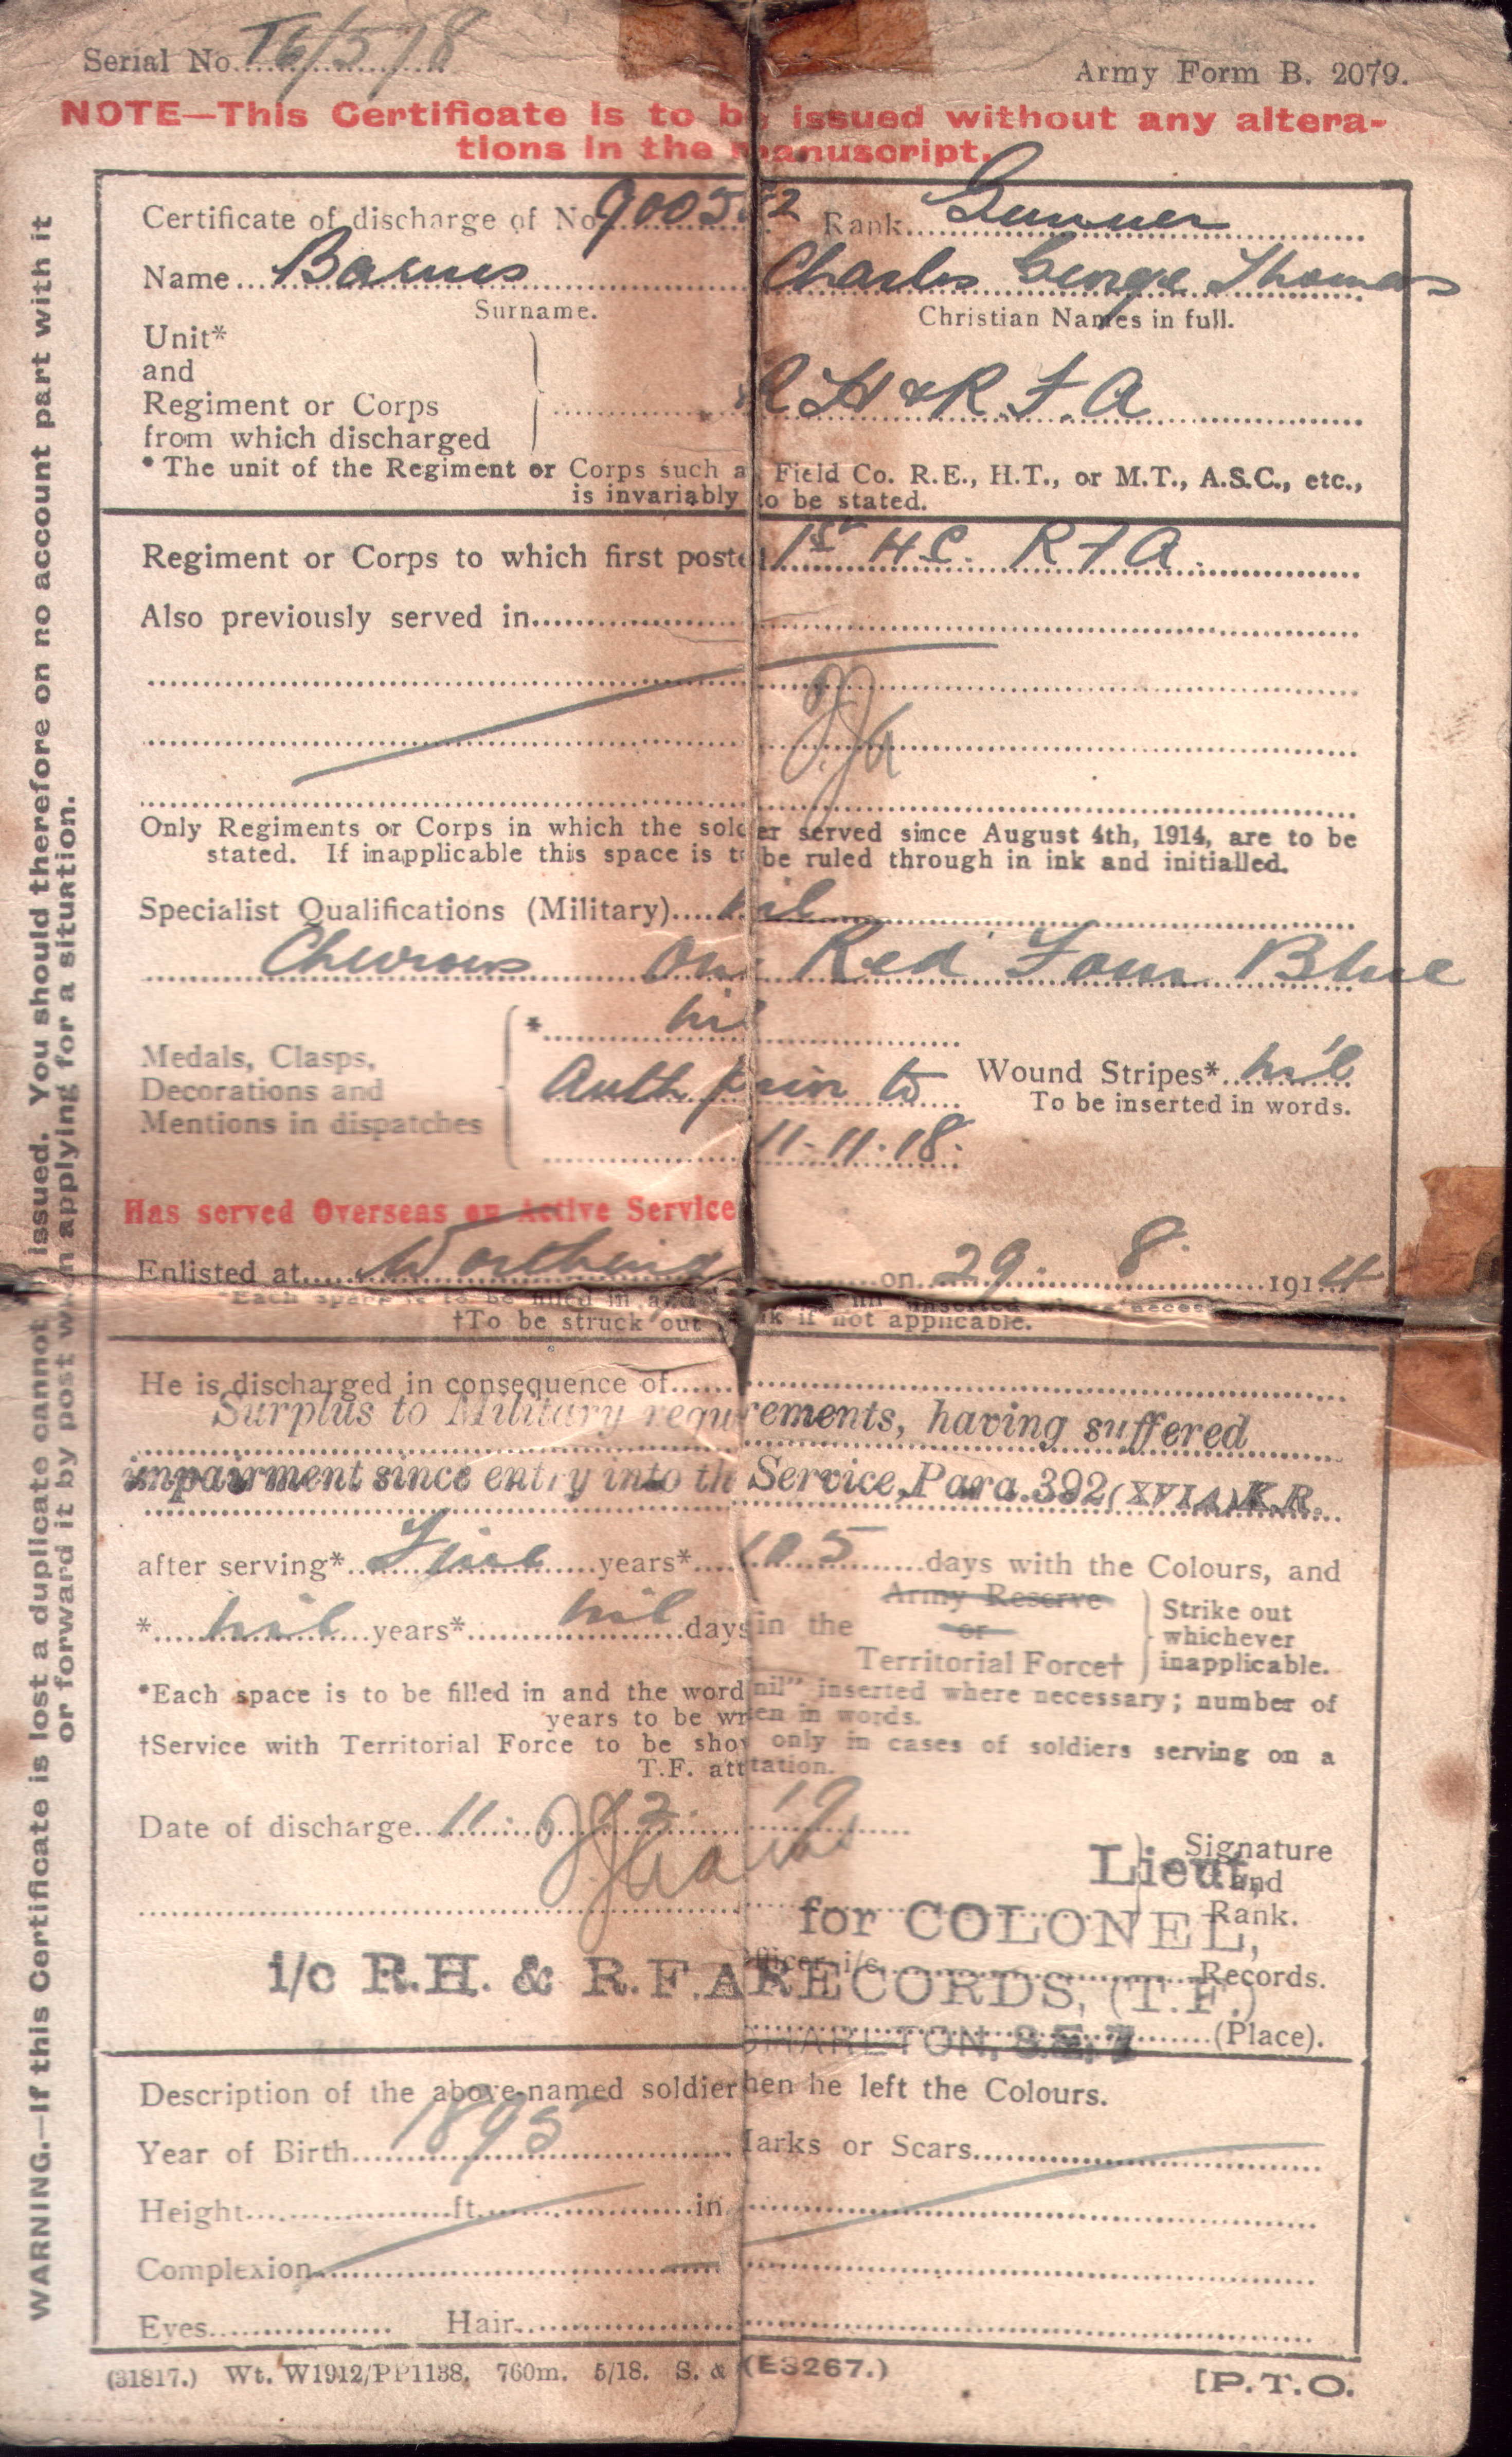 Serial No. T6/578
Army Form B. 2079.
NOTE—This Certificate is to be issued without any altera-
tions in the manuscript.
Certificate of discharge of No. 9005 2 Rank Gunner
Name Barnes Charles George Thomas
Surname. Christian Names in full.
Unit*
and
Regiment or Corps
from which discharged
R H & R F. A
* The unit of the Regiment or Corps such a Field Co. R.E., H.T., or M.T., A.S.C., etc.,
is invariably to be stated.
Regiment or Corps to which first posted 1st H.C. R F A.
Also previously served in
Only Regiments or Corps in which the soldier served since August 4th, 1914, are to be
stated. If inapplicable this space is to be ruled through in ink and initialled.
Specialist Qualifications (Military) Nil
Chevrons One Red Four Blue
Medals, Clasps,
Decorations and
Mentions in dispatches
* Nil
Auth prior to
11-11-18.
Wound Stripes* Nil
To be inserted in words.
Has served Overseas on Active Service
Enlisted at Worthing on 29. 8. 1914
*Each space is to be filled in and inserted where neces
†To be struck out in ink if not applicable.
He is discharged in consequence of
Surplus to Military requirements, having suffered
impairment since entry into the Service, Para. 392 (XVIA) K.R.
after serving* Five years* 105 days with the Colours, and
* Nil years* Nil days in the Army Reserve
or
Territorial Force†
Strike out
whichever
inapplicable.
*Each space is to be filled in and the word nil" inserted where necessary; number of
years to be written in words.
†Service with Territorial Force to be shown only in cases of soldiers serving on a
T.F. attestation.
Date of discharge 11. 12. 19
Signature
and
Rank.
Lieut,
for COLONEL,
Officer i/c Records.
i/c R.H. & R.F.A RECORDS, (T.F.)
CHARLTON, S.E. 7 (Place).
Description of the above-named soldier when he left the Colours.
Year of Birth 1895 Marks or Scars
Height ft. in.
Complexion
Eyes Hair
(31817.) Wt. W1912/PP1138. 760m. 5/18. S. & (E3267.)
[P.T.O.
WARNING.—If this Certificate is lost a duplicate cannot issued. You should therefore on no account part with it
or forward it by post when applying for a situation.